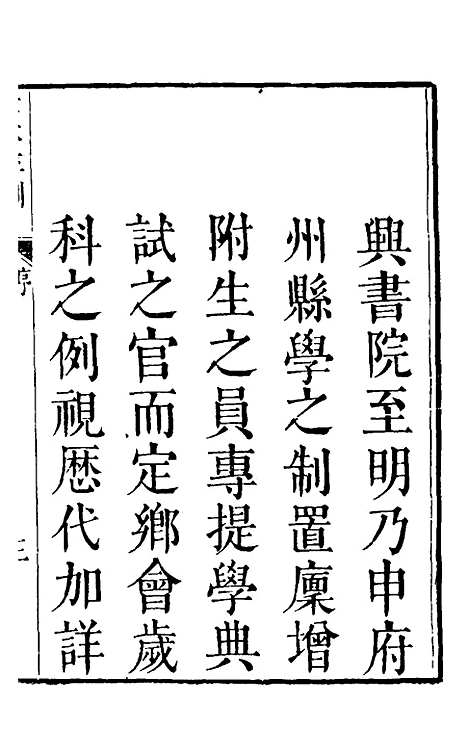 興書院至明乃申府
州縣學之制置廩增
附生之員專提學典
試之官而定鄉會歲
科之例視歷代加詳
序
三